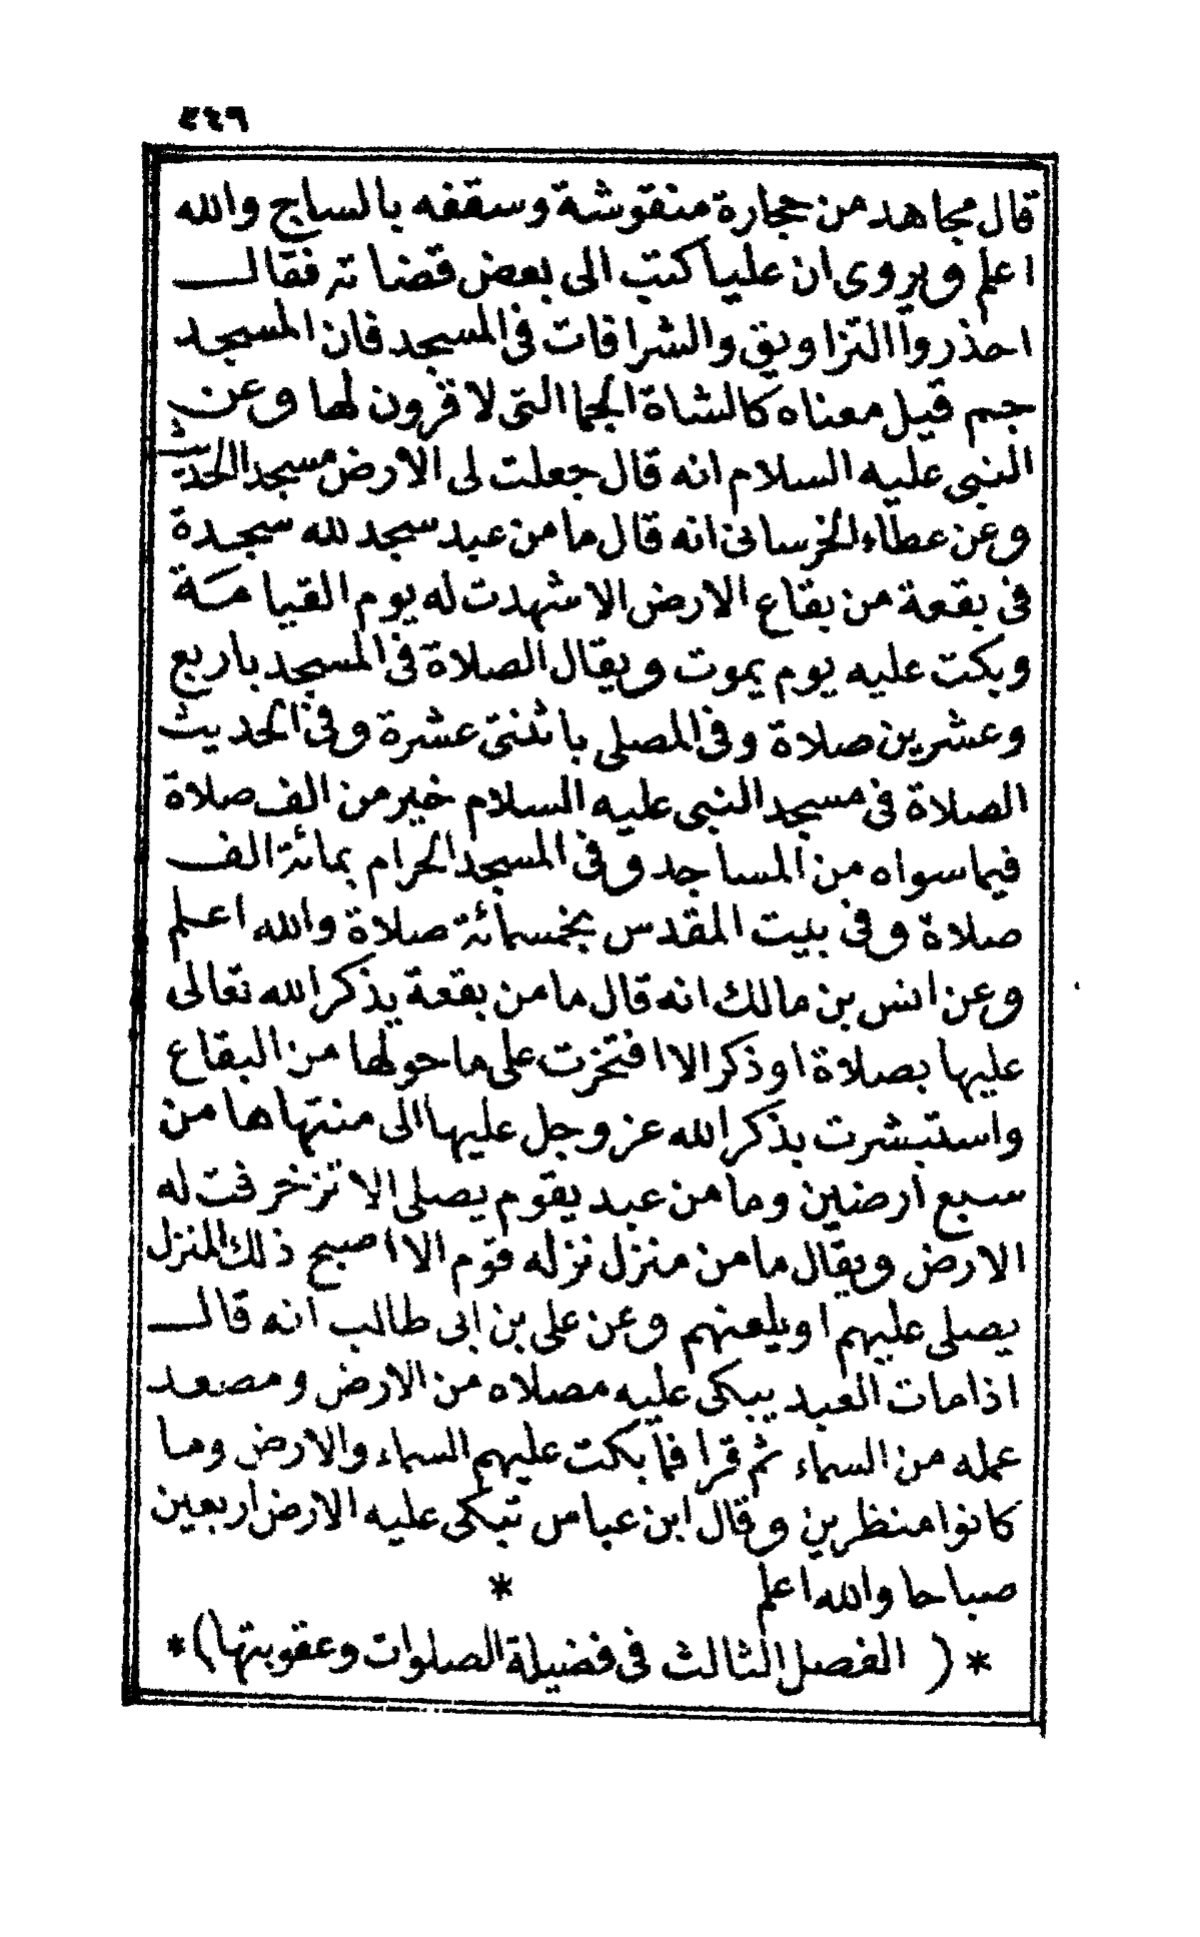 ٢٤٦
قال مجاهد من حجارة منقوشة وسقفه بالساج والله
اعلم ويروى ان عليا كتب الى بعض قضاته فقال
احذروا التزاويق والشرافات فى المسجد فان المسجد
جم قيل معناه كالشاة الجما التى لا قرون لها وعن
النبى عليه السلام انه قال جعلت لى الارض مسجدا الحديث
وعن عطاء الخرسانى انه قال ما من عبد سجد لله سجدة
فى بقعة من بقاع الارض الا شهدت له يوم القيامة
وبكت عليه يوم يموت ويقال الصلاة فى المسجد باربع
وعشرين صلاة وفى المصلى باثنتى عشرة وفى الحديث
الصلاة فى مسجد النبى عليه السلام خير من الف صلاة
فيما سواه من المساجد وفى المسجد الحرام بمائة الف
صلاة وفى بيت المقدس بخمسمائة صلاة والله اعلم
وعن انس بن مالك انه قال ما من بقعة يذكر الله تعالى
عليها بصلاة او ذكر الا افتخرت على ما حولها من البقاع
واستبشرت بذكر الله عز وجل عليها الى منتهاها من
سبع ارضين وما من عبد يقوم يصلى الا تزخرفت له
الارض ويقال ما من منزل نزله قوم الا اصبح ذلك المنزل
يصلى عليهم او يلعنهم وعن على بن ابى طالب انه قال
اذا مات العبد يبكى عليه مصلاه من الارض ومصعد
عمله من السماء ثم قرا فما بكت عليهم السماء والارض وما
كانوا منظرين وقال ابن عباس تبكى عليه الارض اربعين
صباحا والله اعلم *
*( الفصل الثالث فى فضيلة الصلوات وعقوبتها)*